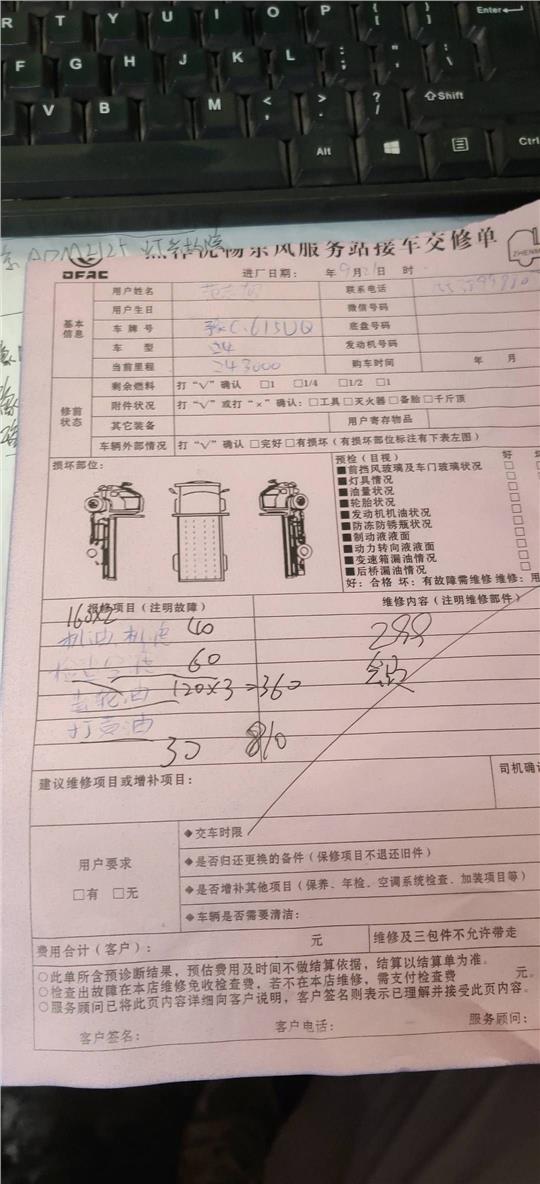 R T Y U I O P { [ } ] Enter
F G H J K L : ; " '
V B N M < , > . ? / Shift
Alt Ctrl
ADM2121
畅东风服务站接车交修单
DFAC
进厂日期： 年9月21日 时
基本信息
用户姓名 联系电话
用户生日 微信号码
车牌号 豫C·615UQ 底盘号码
车 型 24 发动机号码
当前里程 243000 购车时间 年 月
修前状态
剩余燃料 打“√”确认 □1 □1/4 □1/2 □1
附件状况 打“√”或打“×”确认：□工具 □灭火器 □备胎 □千斤顶
其它装备 用户寄存物品
车辆外部情况 打“√”确认 □完好 □有损坏（有损坏部位标注有下表左图）
损坏部位：
预检（目视） 好
■前挡风玻璃及车门玻璃状况 □
■灯具情况 □
■油量状况 □
■轮胎状况 □
■发动机机油状况 □
■防冻防锈瓶状况 □
■制动液液面 □
■动力转向液液面 □
■变速箱漏油情况 □
■后桥漏油情况 □
好：合格 坏：有故障需维修 维修：用
报修项目（注明故障） 维修内容（注明维修部件）
160×2
机油 机滤 40
60
齿轮油 120×3=360
打黄油
30 810
建议维修项目或增补项目： 司机确
用户要求
□有 □无
◆交车时限
◆是否归还更换的备件（保修项目不退还旧件）
◆是否增补其他项目（保养、年检、空调系统检查、加装项目等）
◆车辆是否需要清洁：
费用合计（客户）： 元 维修及三包件不允许带走
○此单所含预诊断结果，预估费用及时间不做结算依据，结算以结算单为准。
○检查出故障在本店维修免收检查费，若不在本店维修，需支付检查费 元。
○服务顾问已将此页内容详细向客户说明，客户签名则表示已理解并接受此页内容。
客户签名： 客户电话： 服务顾问：